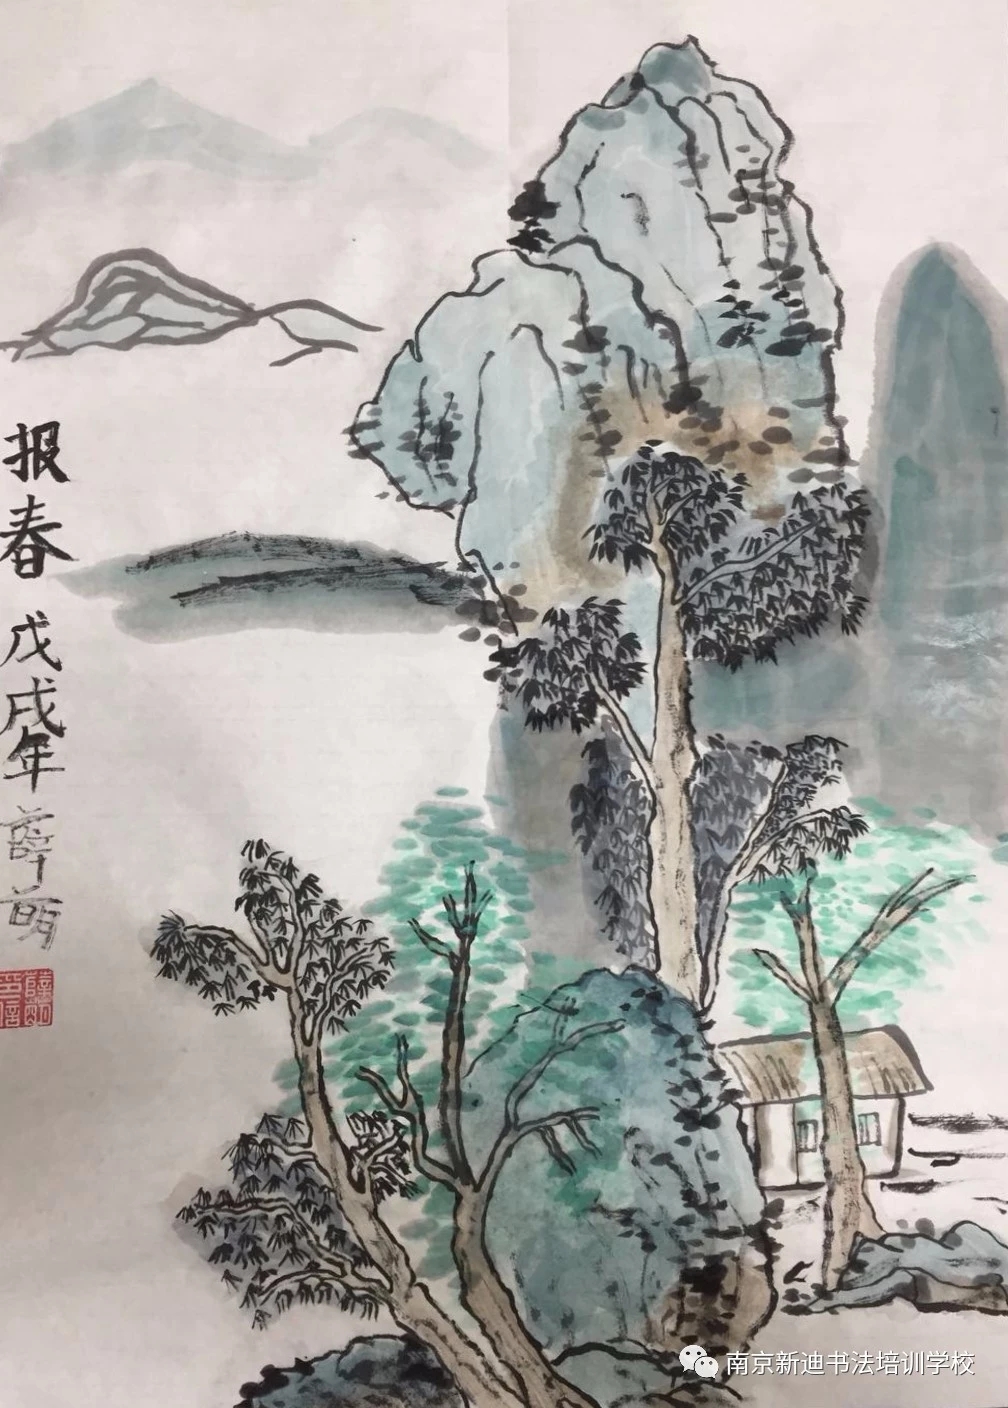 报春 戊戌年 薛萌
薛萌
印信
南京新迪书法培训学校